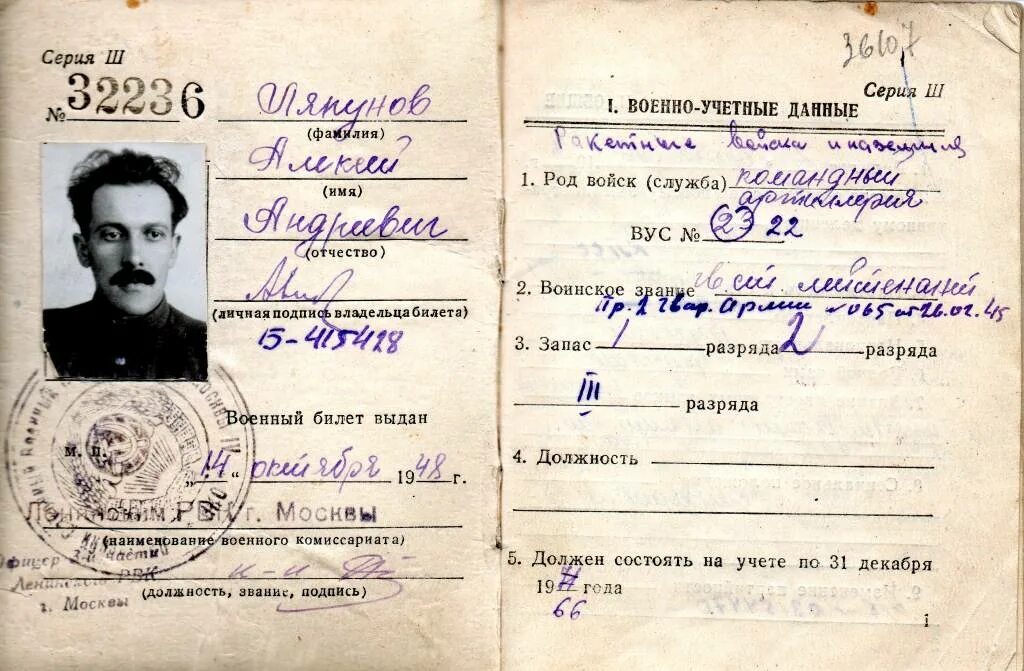 Серия Ш
№ 32236
Ляпунов
(фамилия)
Алексей
(имя)
Андреевич
(отчество)
(личная подпись владельца билета)
Б-415428
Военный билет выдан
м. п.
„14" октября 1948 г.
Ленинским РВК г. Москвы
(наименование военного комиссариата)
Офицер 3-й части
Ленинского РВК
г. Москвы
(должность, звание, подпись)
36107
Серия Ш
I. ВОЕННО-УЧЕТНЫЕ ДАННЫЕ
Ракетные войска и наземная
1. Род войск (служба) командный
артиллерия
ВУС № 23 22
2. Воинское звание гв. ст. лейтенант
Пр. 2 Гвар. Армии № 065 от 26.02.45
3. Запас 1 разряда 2 разряда
III разряда
4. Должность
5. Должен состоять на учете по 31 декабря
19 года
66
1